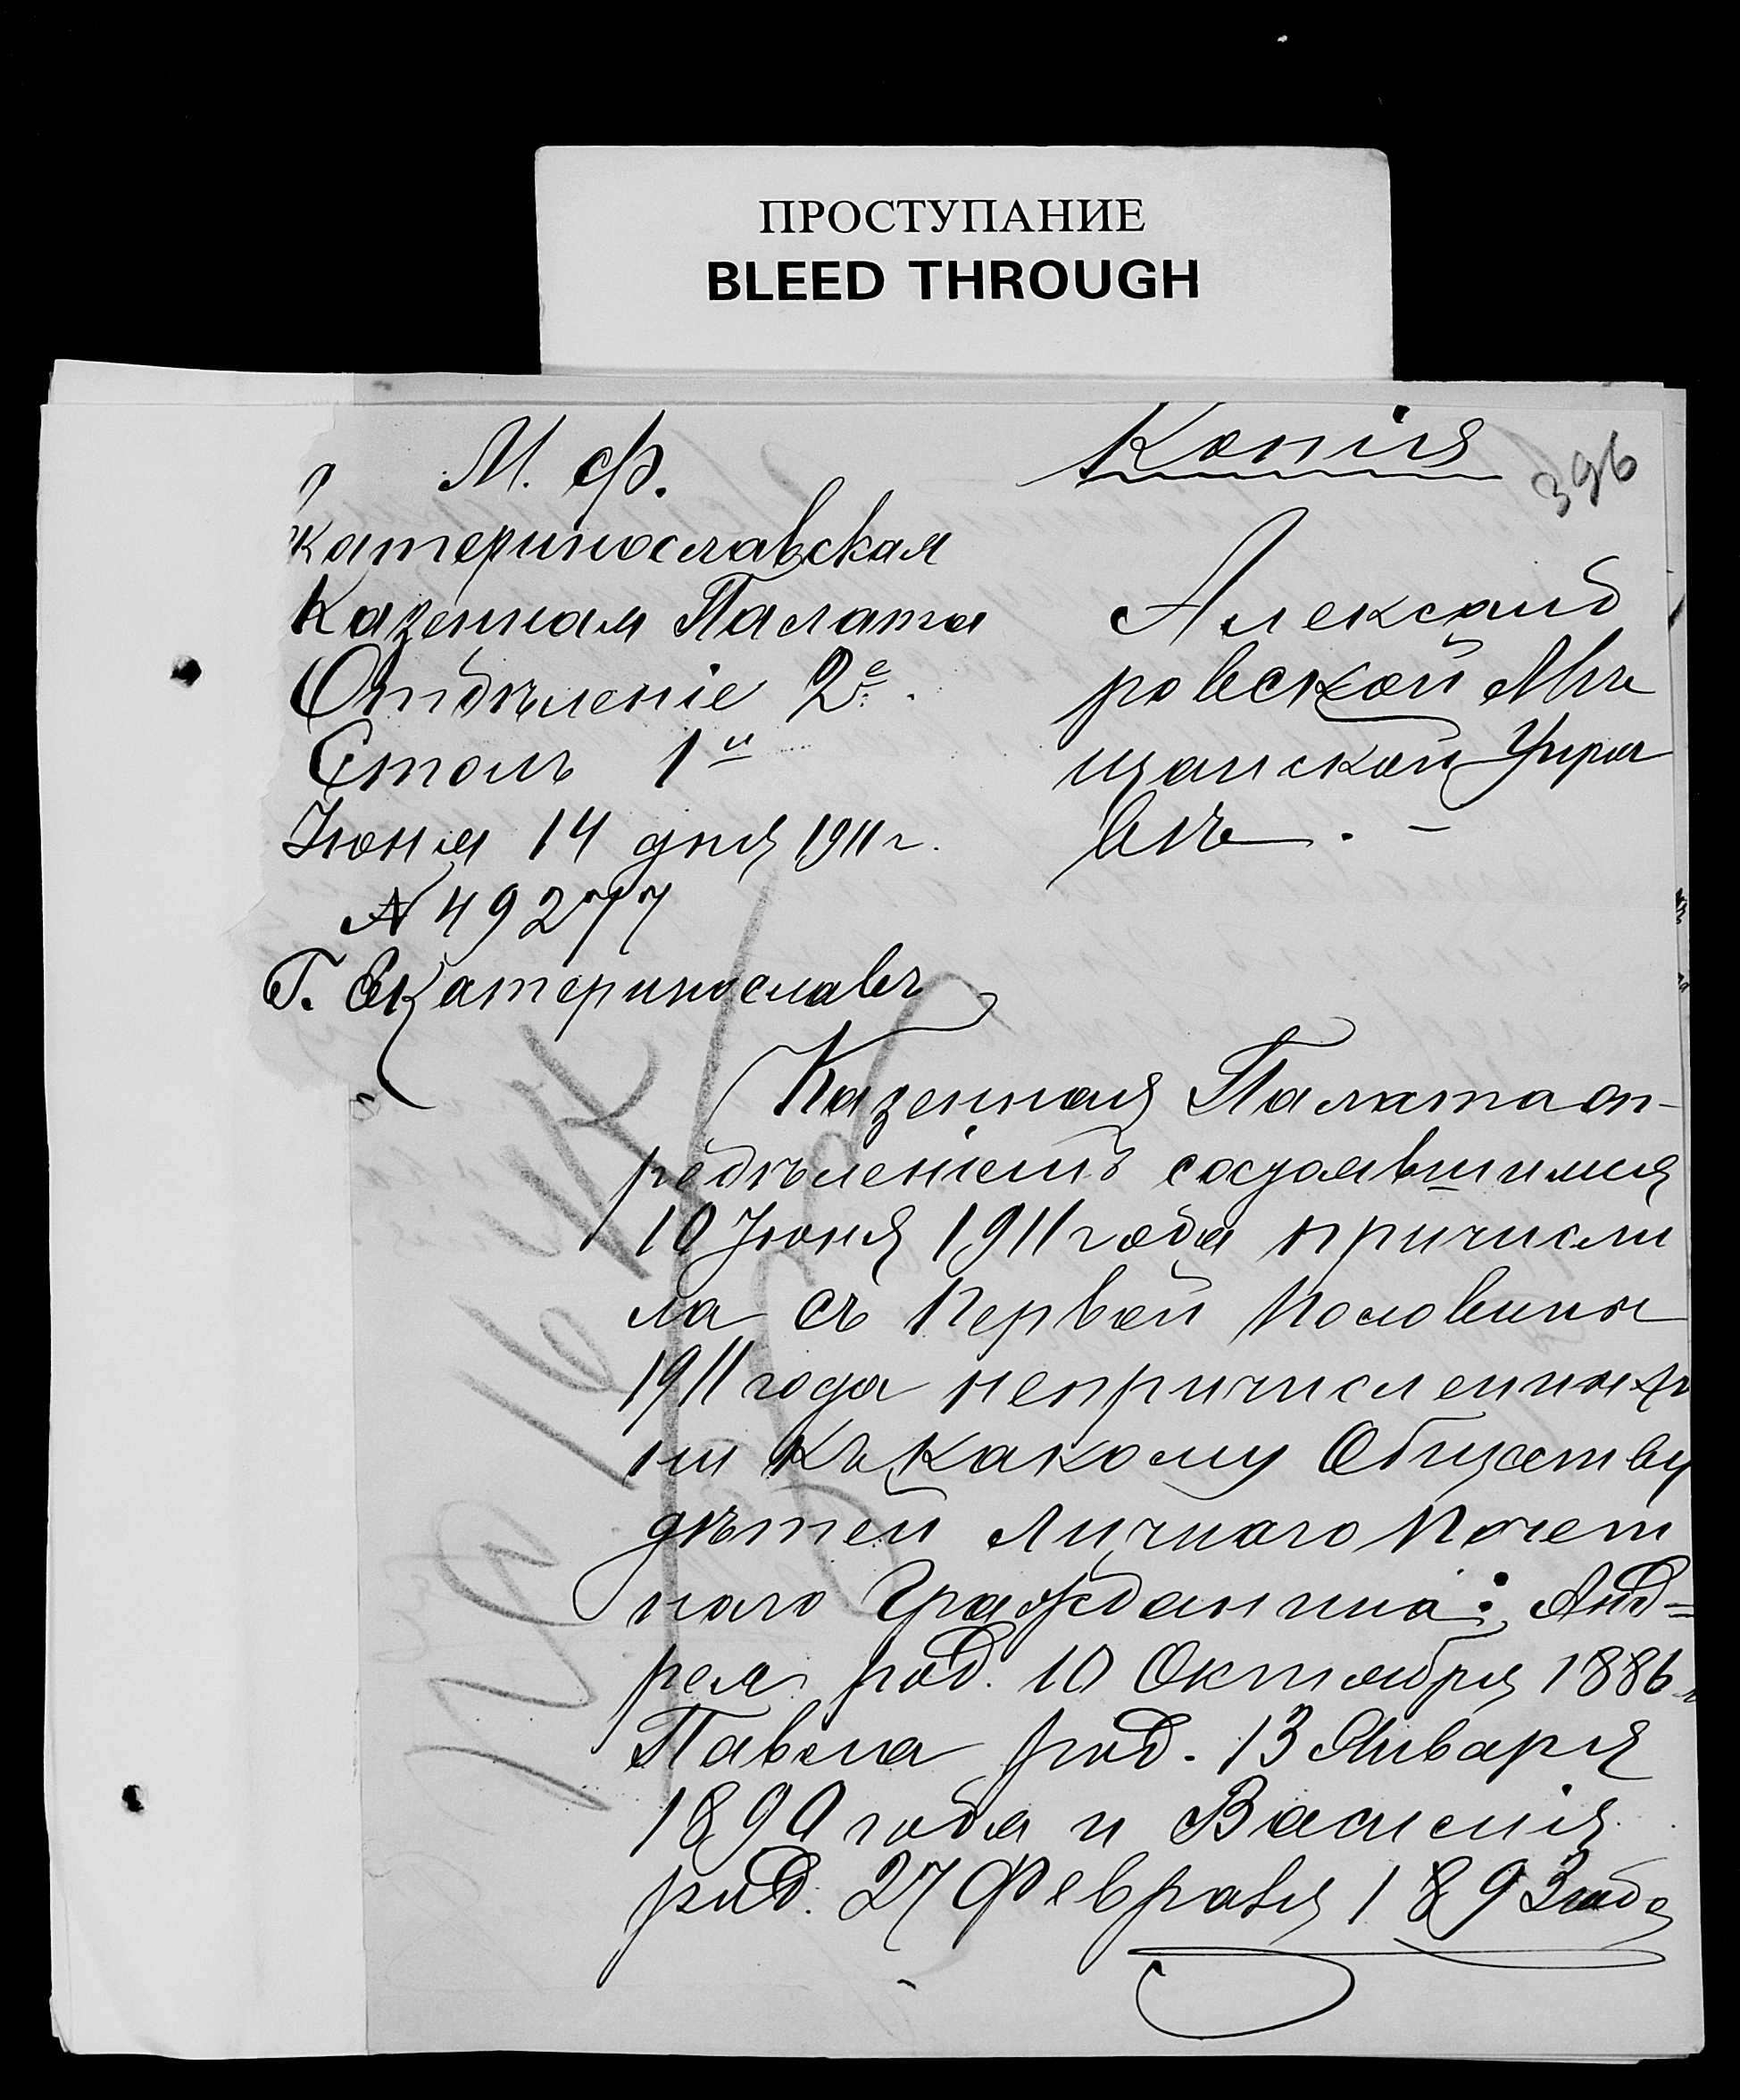 ПРОСТУПАНИЕ
BLEED THROUGH
Копія
396
М. Ф.
катеринославская
Казенная Палата
Отдѣленіе 2е.
Столъ 1й
Іюня 14 дня 1911 г.
№ 49277
Г. Екатеринославъ
Александ
ровской Мѣ
щанской Упра
вѣ. –
Казенная Палата оп-
редѣленіемъ состоявшимся
10 Іюня 1911 года причисли
ла съ Первой Половины
1911 года непричисленныхъ
ни къ какому Обществу
дѣтей Личнаго Почет
наго Гражданина: Анд=
рея род. 10 Октября 1886 г
Павла род. 13 Января
1890 года и Василія
род. 27 Февраля 1893 года